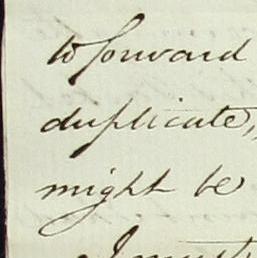 to forward
duplicate,
might be
I must